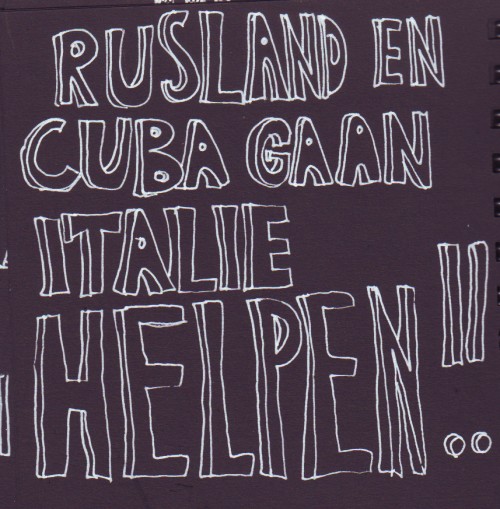 RUSLAND EN
CUBA GAAN
ITALIE
HELPEN!!